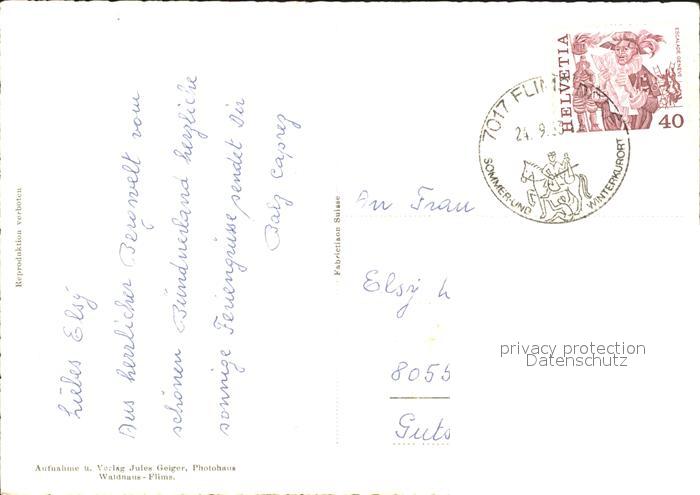 Liebes Elsy
Aus herrlicher Bergwelt vom
schönen Bündnerland herzliche
sonnige Feriengrüsse sendet dir
Balz Caprez
Reproduktion verboten
Aufnahme u. Verlag Jules Geiger, Photohaus
Waldhaus-Flims.
Fabrication Suisse
7017 FLIMS
24. 9.
SOMMER-UND WINTERKURORT
HELVETIA
ESCALADE GENÈVE
40
An Frau
Elsy
8055
privacy protection
Datenschutz